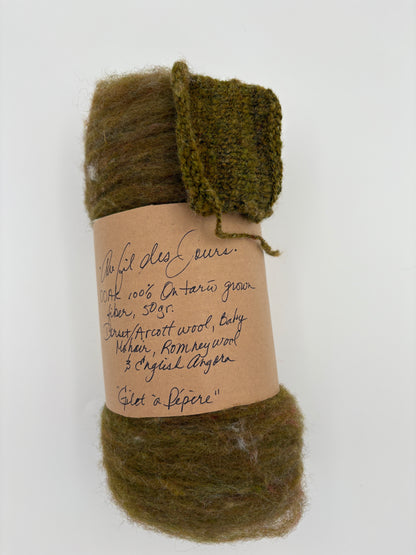 Au fil des Jours.
OOAK 100% Ontario grown
fiber, 50gr.
Dorset/Arcott wool, Baby
Mohair, Romney wool
& English Angora
"Gilet à Pépère"